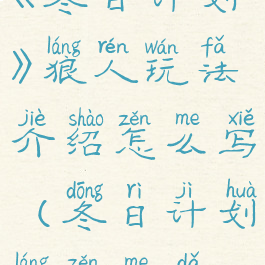 《冬日计划
láng rén wán fǎ
》狼人玩法
jiè shào zěn me xiě
介绍怎么写
dōng rì jì huà
（冬日计划
láng zěn me dǎ